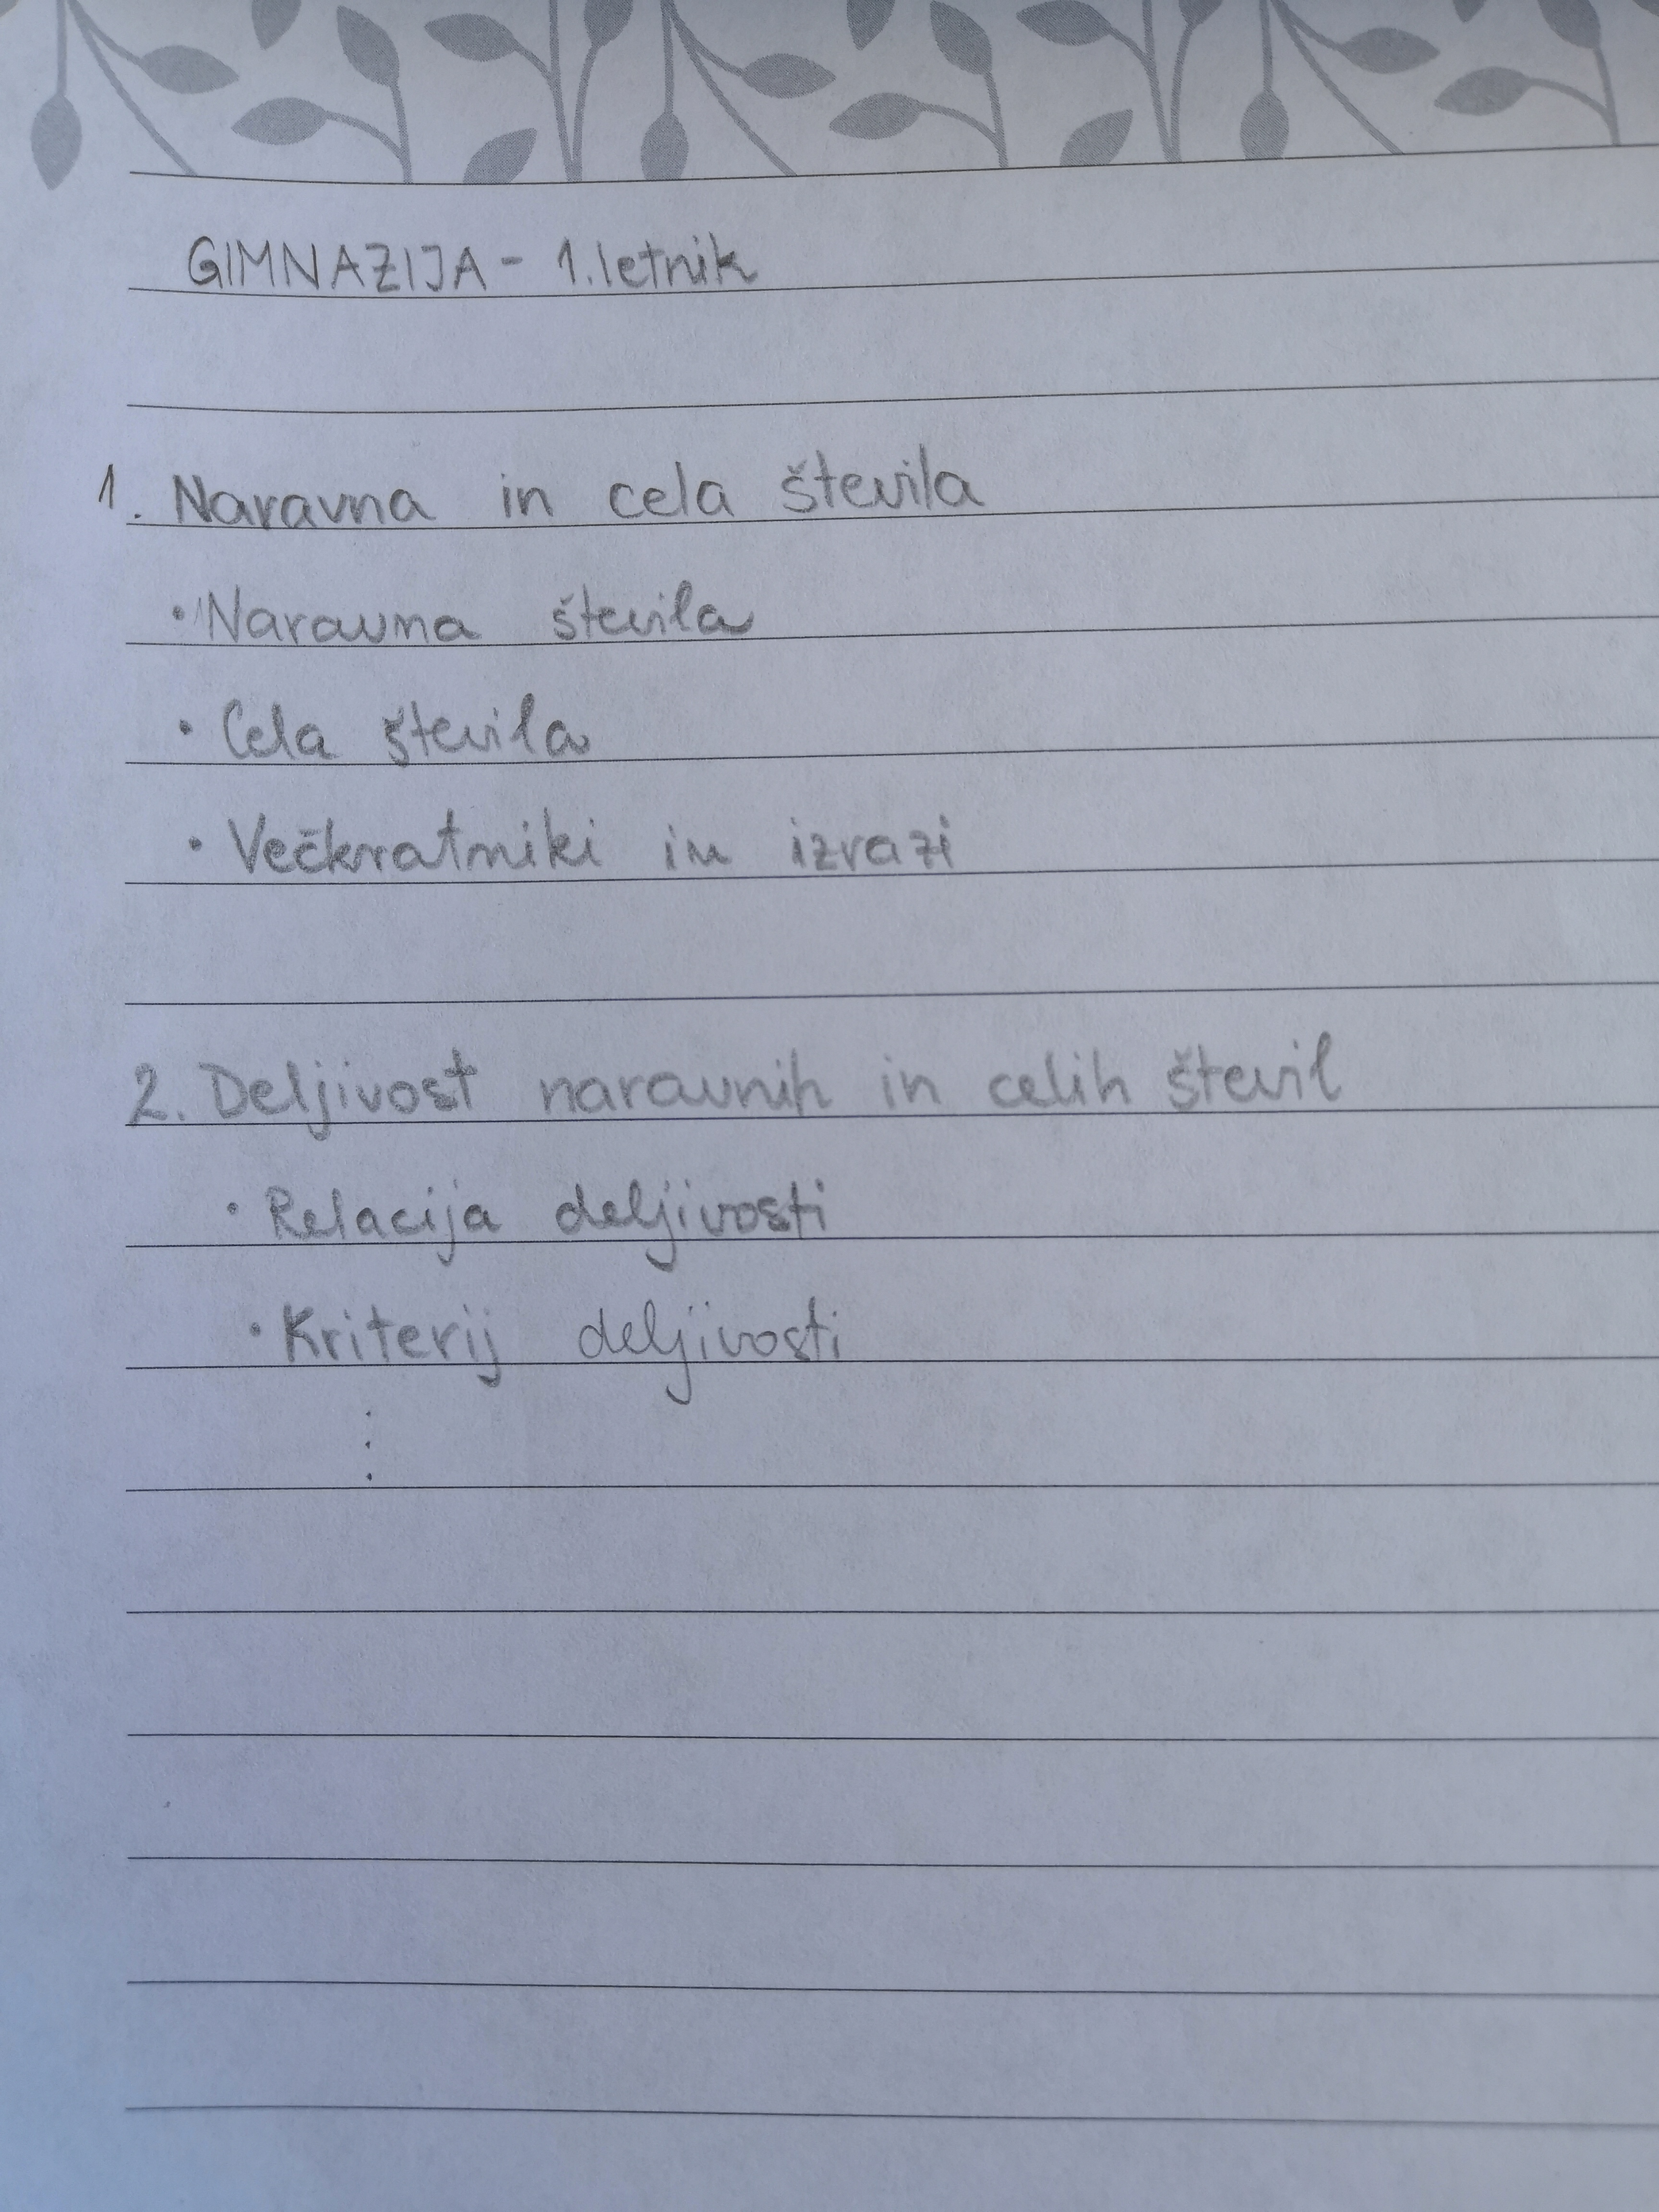 GIMNAZIJA - 1. letnik
1. Naravna in cela števila
• Naravna števila
• Cela števila
• Večkratniki in izrazi
2. Deljivost naravnih in celih števil
• Relacija deljivosti
• Kriterij deljivosti
⋮